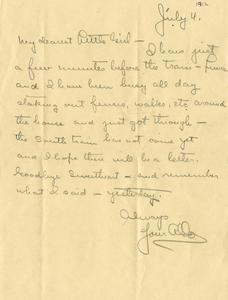 1912
July 4.
My dearest Little Girl - I have just
a few minutes before the train -
and I have been busy all day
staking out fences, walks, etc around
the house and just got through -
the south train has not come yet
and I hope there will be a letter.
Goodbye Sweetheart - and remember
what I said - yesterday.
Always
Your